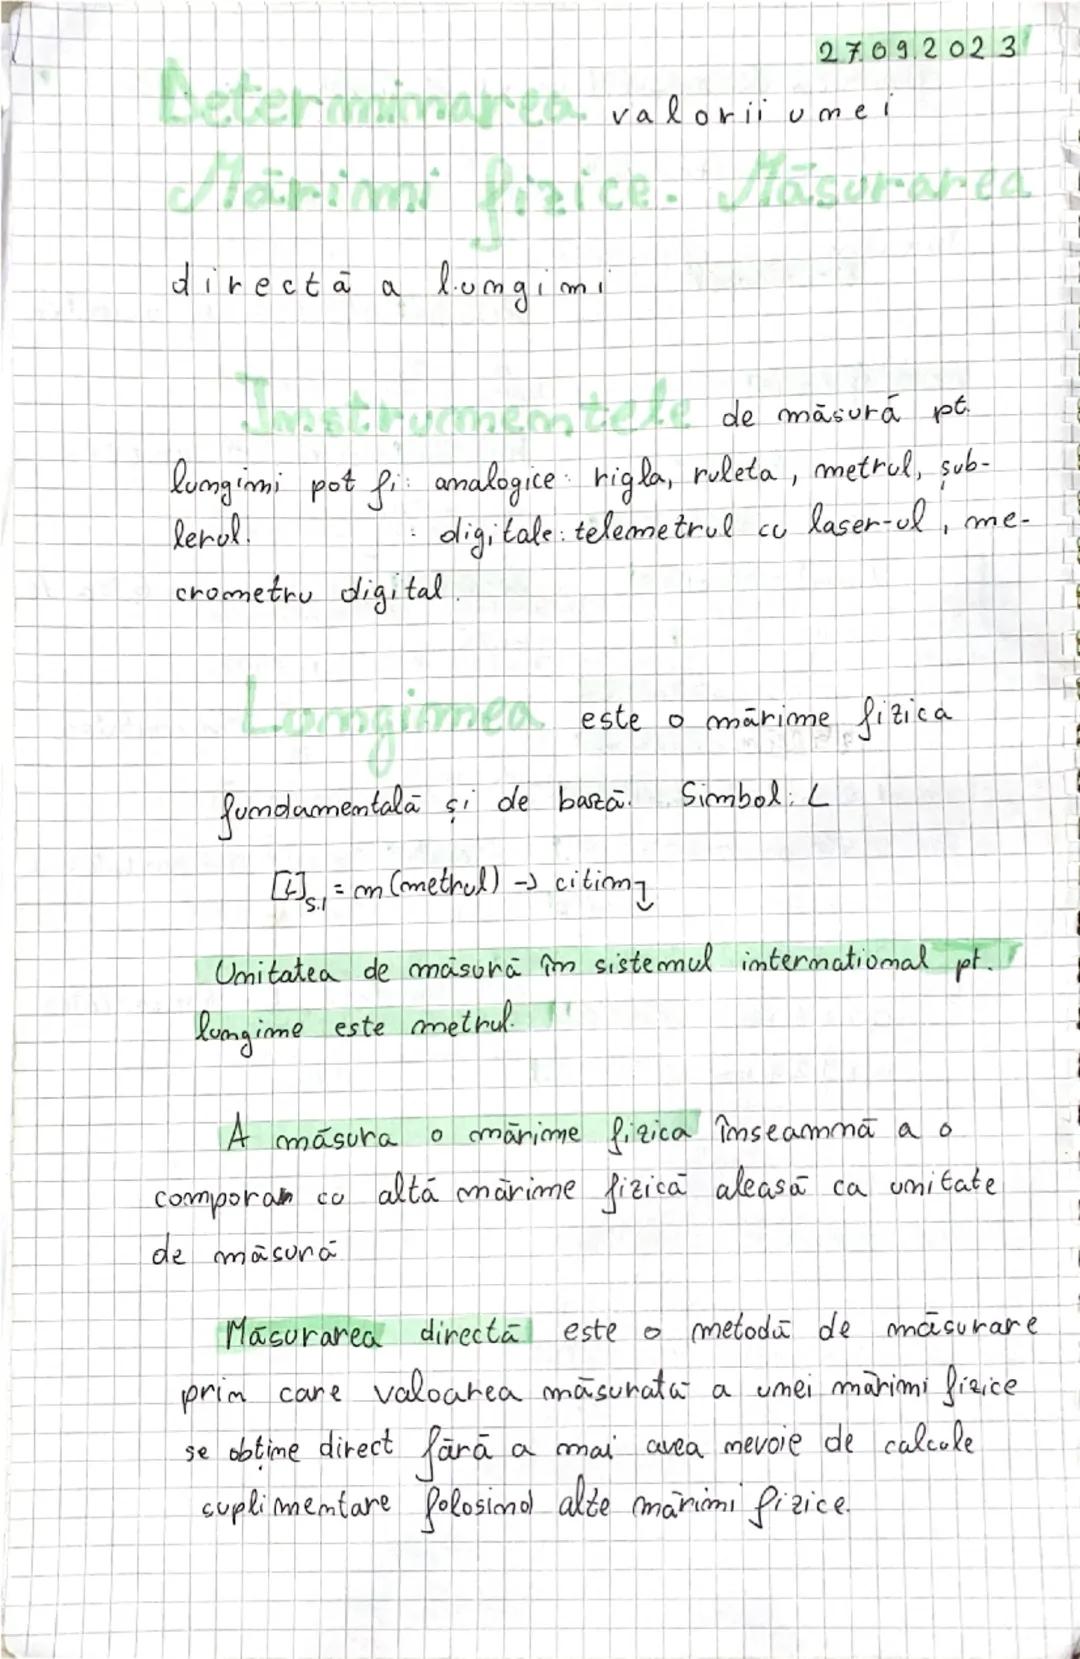 27.09.2023
Determinarea valorii unei
Mărimi fizice. Măsurarea
directă a lungimi
Instrumentele de măsură pt.
lungimi pot fi: analogice: rigla, ruleta, metrul, șub-
lerul. : digitale: telemetrul cu laser-ul, me-
crometru digital.
Lungimea este o mărime fizica
fundamentală și de bază. Simbol: L
[L]S.I = m (metrul) → citim ↓
Unitatea de măsură în sistemul international pt.
lungime este metrul.
A măsura o mărime fizica înseamnă a o
comporan cu altă mărime fizică aleasă ca unitate
de măsură
Măsurarea directă este o metodă de măsurare
prin care valoarea măsurată a unei mărimi fizice
se obține direct fără a mai avea nevoie de calcule
suplimentare folosind alte mărimi fizice.